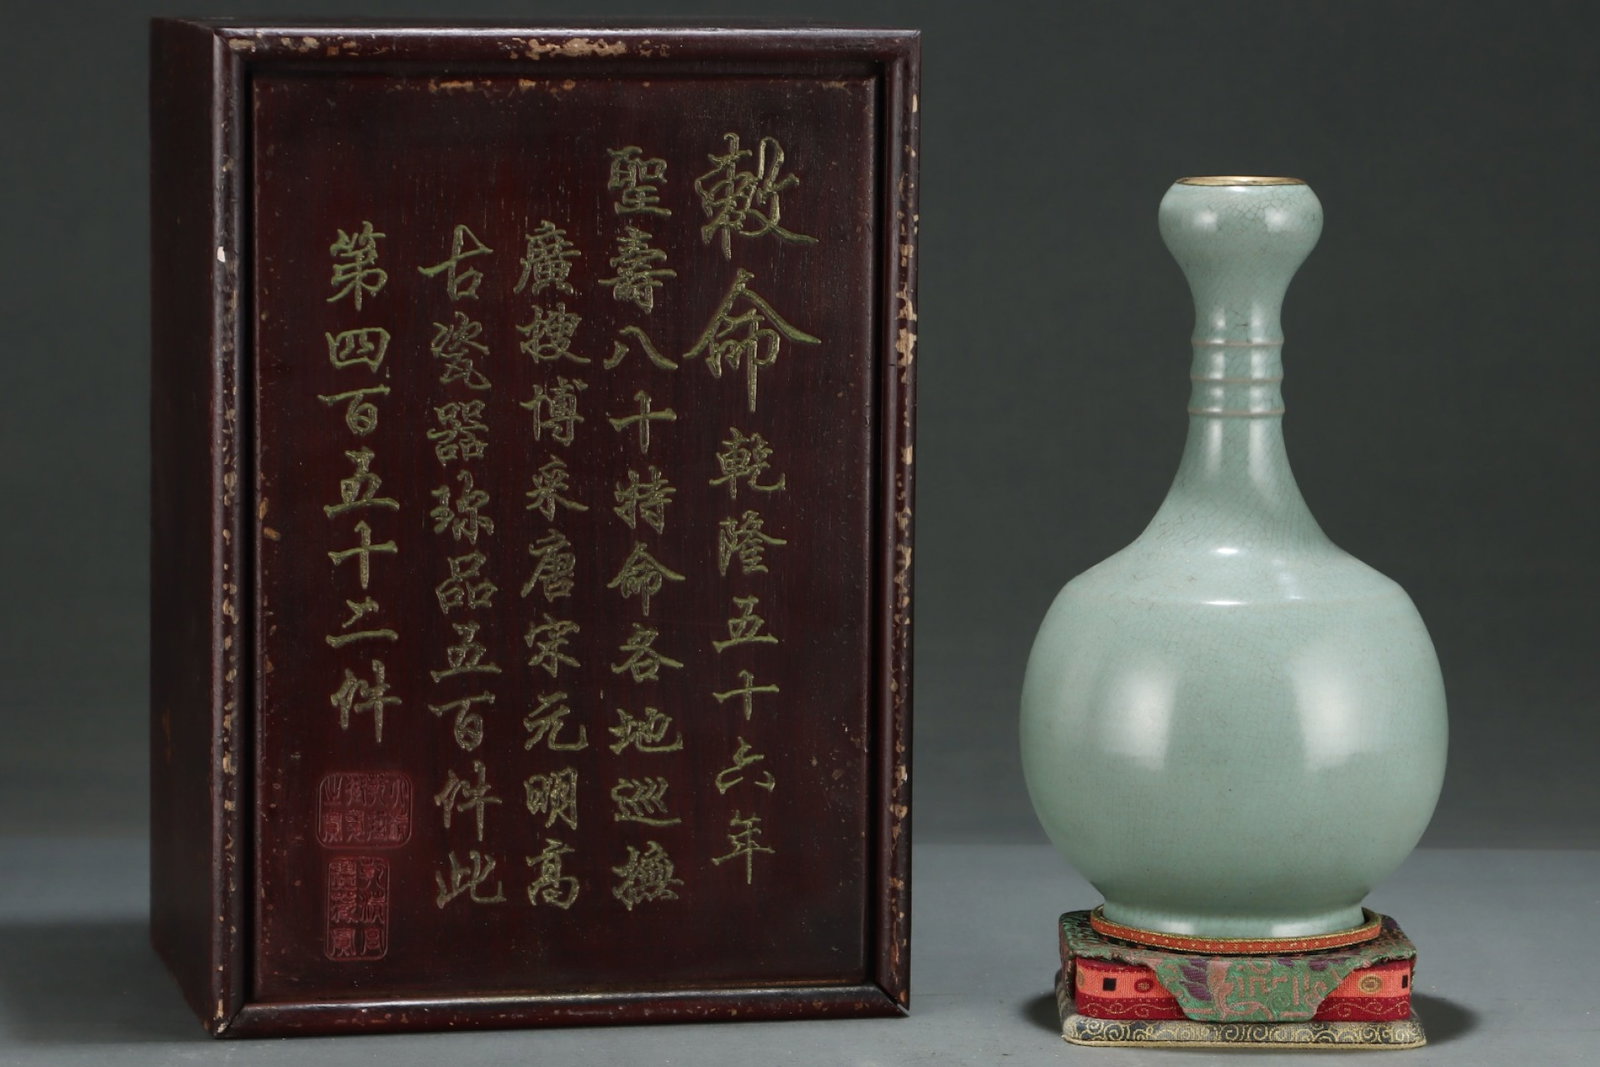 敕命乾隆五十六年
聖壽八十特命各地巡撫
廣搜博采唐宋元明高
古瓷器珎品五百件此
第四百五十二件